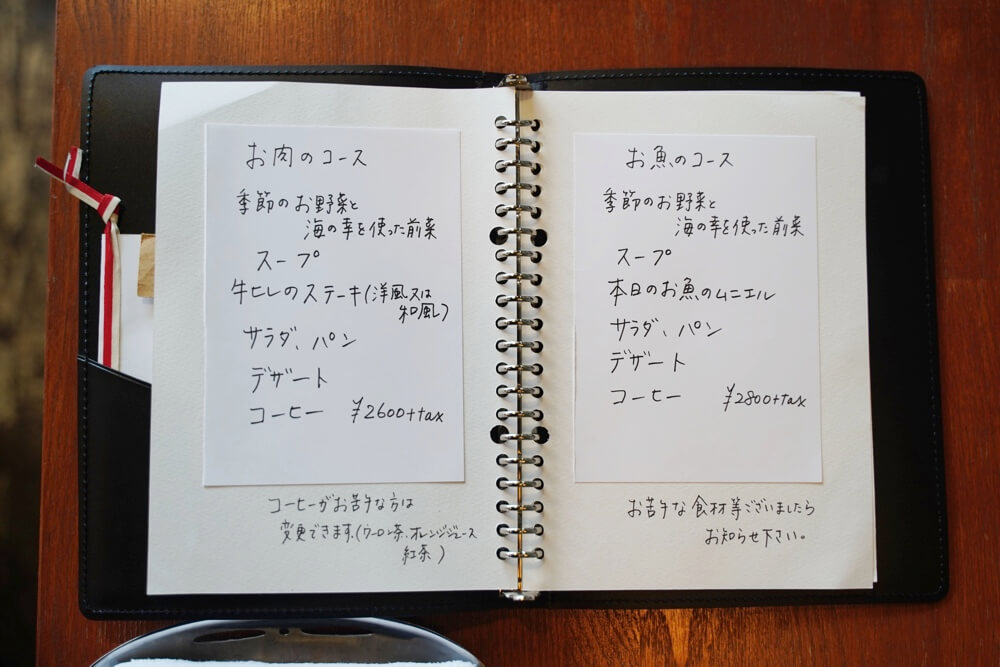 お肉のコース
季節のお野菜と
海の幸を使った前菜
スープ
牛ヒレのステーキ(洋風又は
和風)
サラダ、パン
デザート
コーヒー ¥2600+tax
コーヒーがお苦手な方は
変更できます。(ウーロン茶、オレンジジュース
紅茶)
お魚のコース
季節のお野菜と
海の幸を使った前菜
スープ
本日のお魚のムニエル
サラダ、パン
デザート
コーヒー ¥2800+tax
お苦手な食材等ございましたら
お知らせ下さい。